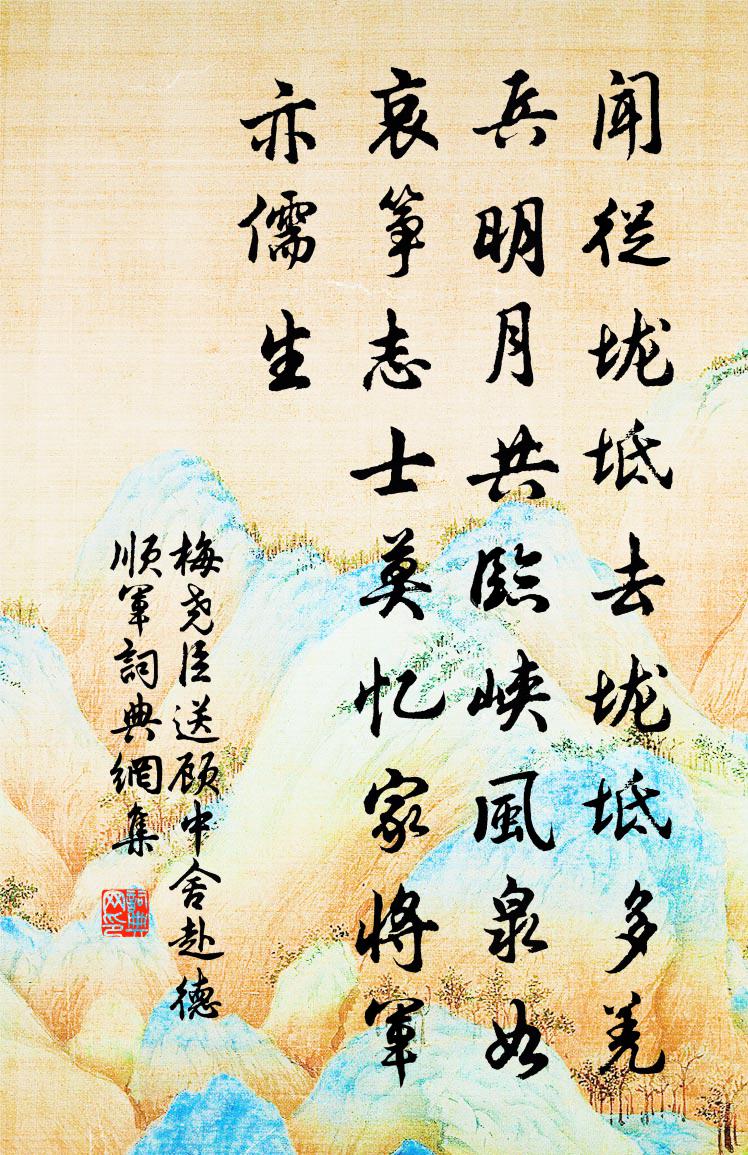 闻從垅坻去垅坻多羌
兵明月共臨峡風泉如
哀筝志士莫忆家將軍
亦儒生
梅尧臣送顾中舍赴德
順軍詞典網集
詞典网印